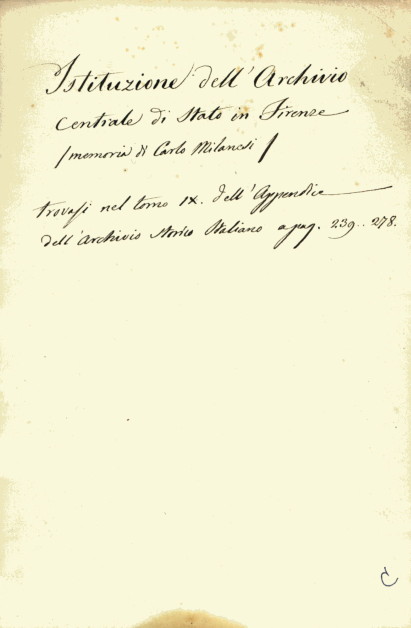 Istituzione dell'Archivio
Centrale di Stato in Firenze
/memoria di Carlo Milanesi/
trovasi nel tomo IX. dell'Appendice
dell'Archivio Storico Italiano a pag. 239..278.
C